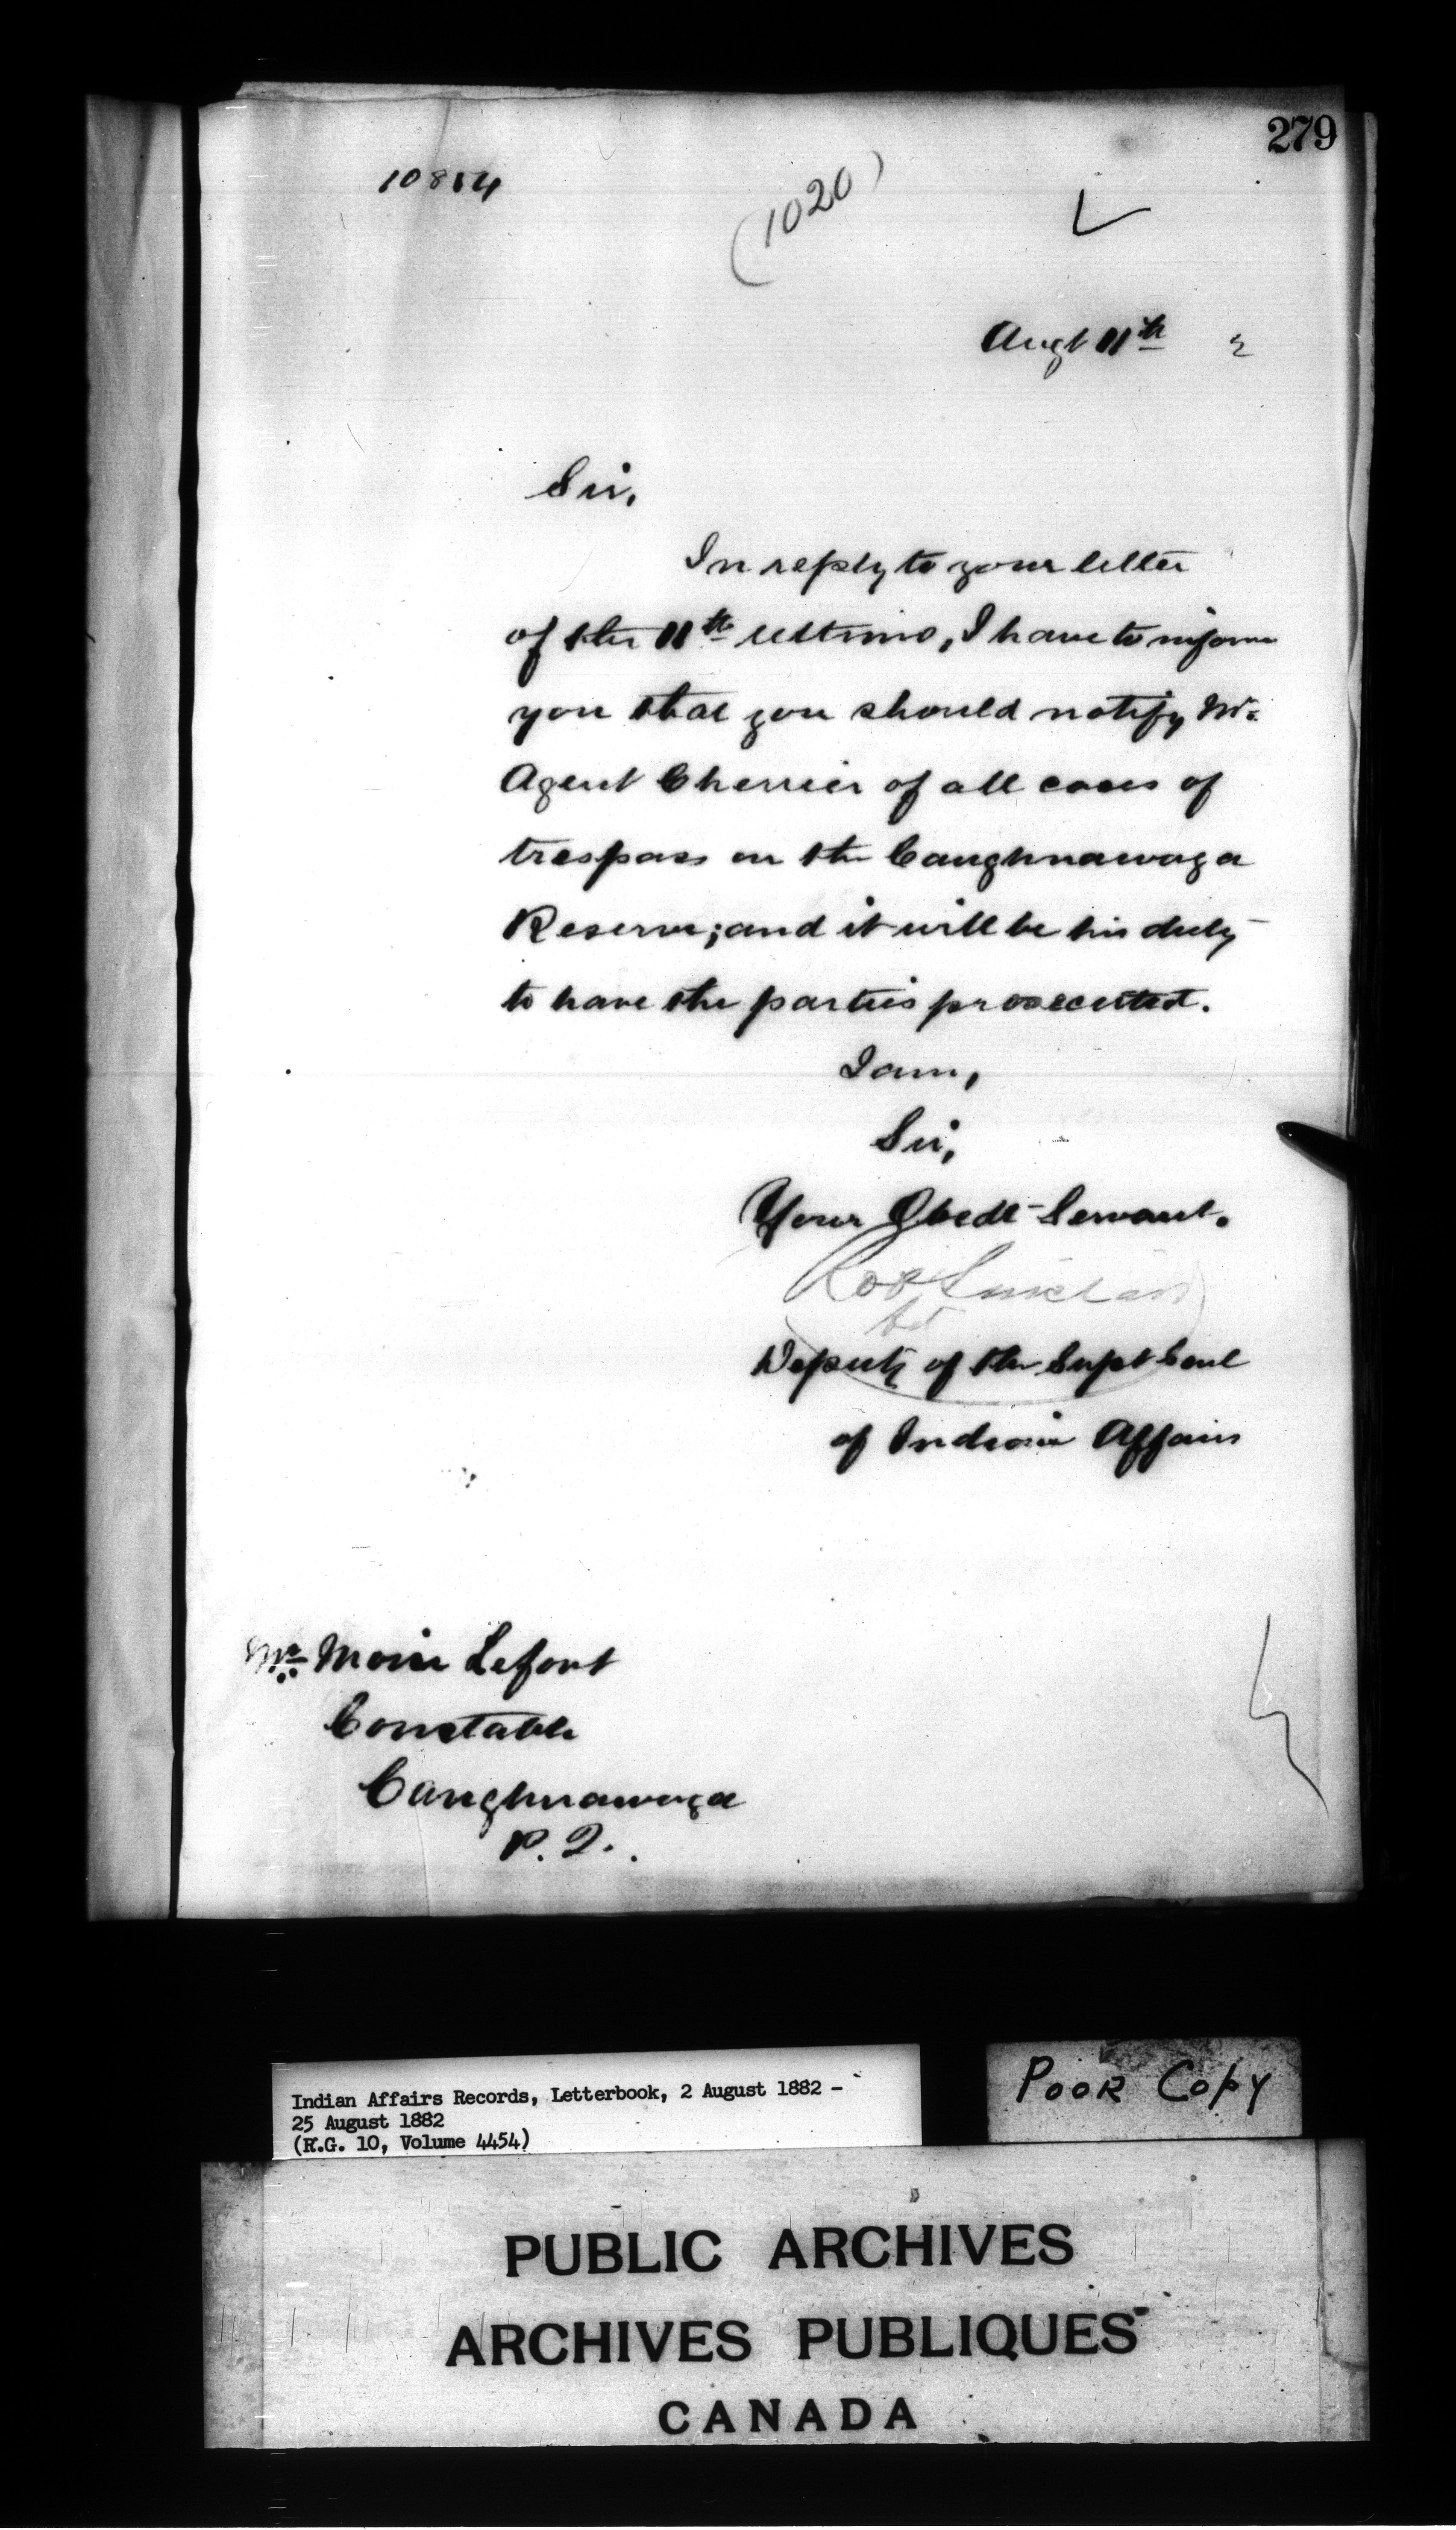 279
10814
(1020)
Augt 11th 2
Sir,
In reply to your letter
of the 11th ultimo, I have to inform
you that you should notify Mr.
Agent Cherrier of all cases of
trespass on the Caughnawaga
Reserve; and it will be his duty
to have the parties prosecuted.
I am,
Sir,
Your Obedt Servant.
Rob Sinclair
Deputy of the Supt Genl
of Indian Affairs
Mr. Moise Lefort
Constable
Caughnawaga
P. Q.
Indian Affairs Records, Letterbook, 2 August 1882 -
25 August 1882
(R.G. 10, Volume 4454)
POOR COPY
PUBLIC ARCHIVES
ARCHIVES PUBLIQUES
CANADA